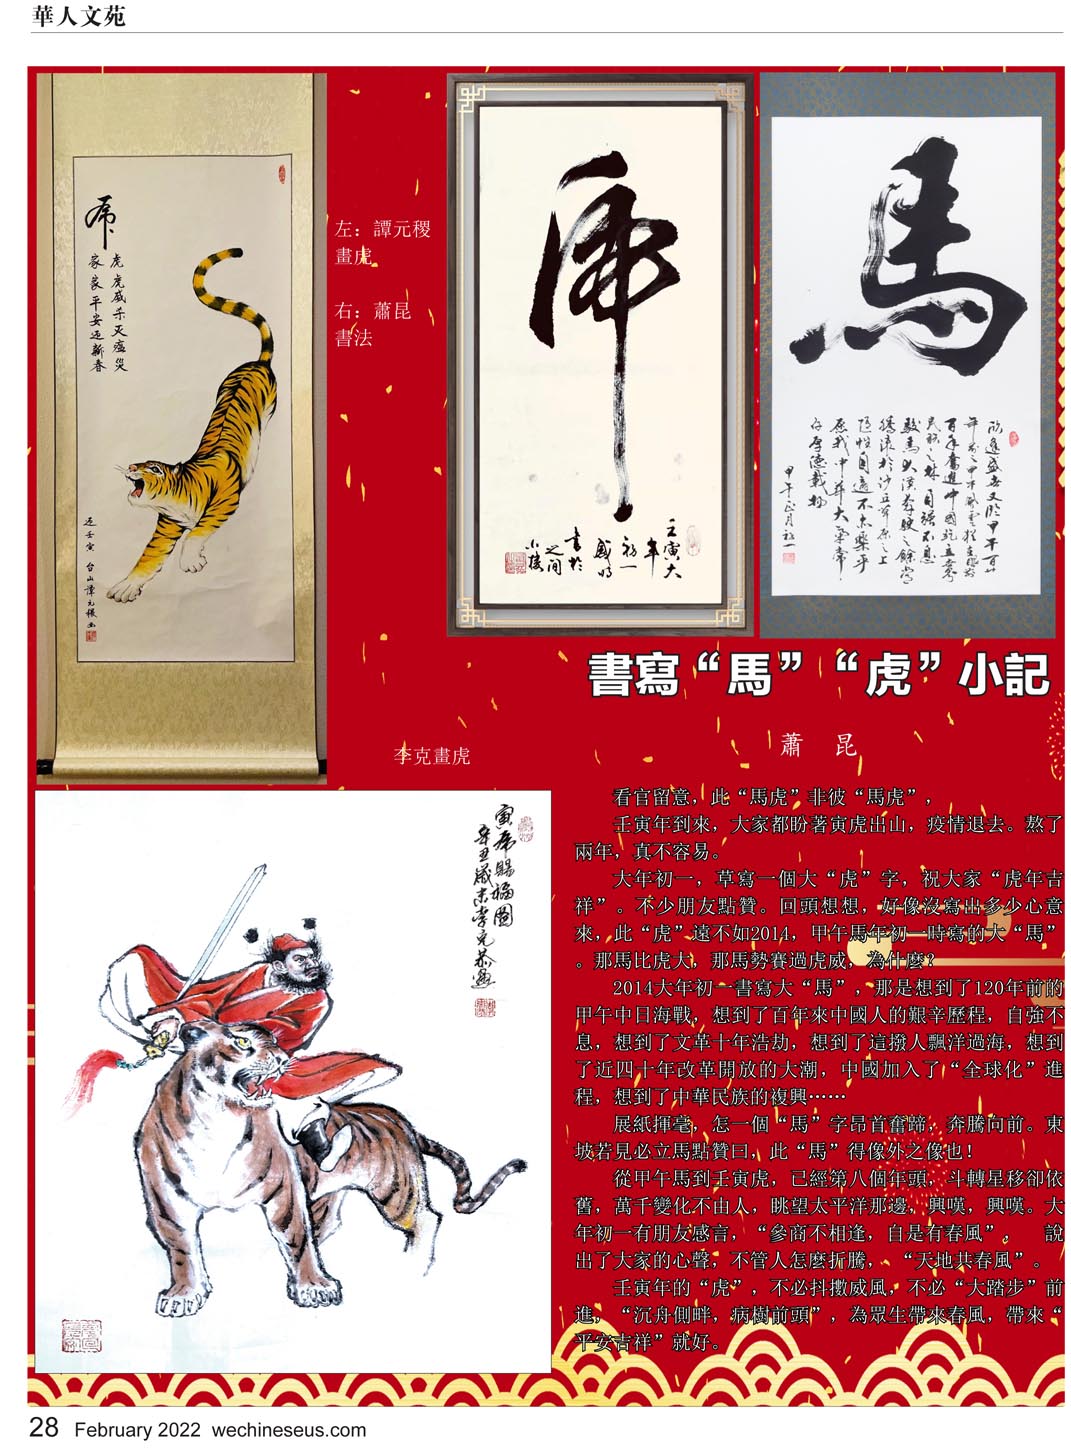 華人文苑
虎
虎虎威杀灭瘟災
家家平安迎新春
迎壬寅 台山譚元稷画
左：譚元稷
畫虎
右：蕭昆
書法
虎
壬寅大
年
初一
感時
書於
之间
小楼
馬
甲午正月初一
書寫“馬”“虎”小記
蕭 昆
李克畫虎
寅虎賜福圖
辛丑歲末李克恭畫
看官留意，此“馬虎”非彼“馬虎”，
壬寅年到來，大家都盼著寅虎出山，疫情退去。熬了
兩年，真不容易。
大年初一，草寫一個大“虎”字，祝大家“虎年吉
祥”。不少朋友點贊。回頭想想，好像沒寫出多少心意
來，此“虎”遠不如2014，甲午馬年初一時寫的大“馬”
。那馬比虎大，那馬勢賽過虎威，為什麼？
2014大年初一書寫大“馬”，那是想到了120年前的
甲午中日海戰，想到了百年來中國人的艱辛歷程，自強不
息，想到了文革十年浩劫，想到了這撥人飄洋過海，想到
了近四十年改革開放的大潮，中國加入了“全球化”進
程，想到了中華民族的複興……
展紙揮毫，怎一個“馬”字昂首奮蹄，奔騰向前。東
坡若見必立馬點贊曰，此“馬”得像外之像也！
從甲午馬到壬寅虎，已經第八個年頭，斗轉星移卻依
舊，萬千變化不由人，眺望太平洋那邊，興嘆，興嘆。大
年初一有朋友感言，“參商不相逢，自是有春風”， 說
出了大家的心聲，不管人怎麼折騰，“天地共春風”。
壬寅年的“虎”，不必抖擻威風，不必“大踏步”前
進，“沉舟側畔，病樹前頭”，為眾生帶來春風，帶來“
平安吉祥”就好。
28 February 2022 wechineseus.com